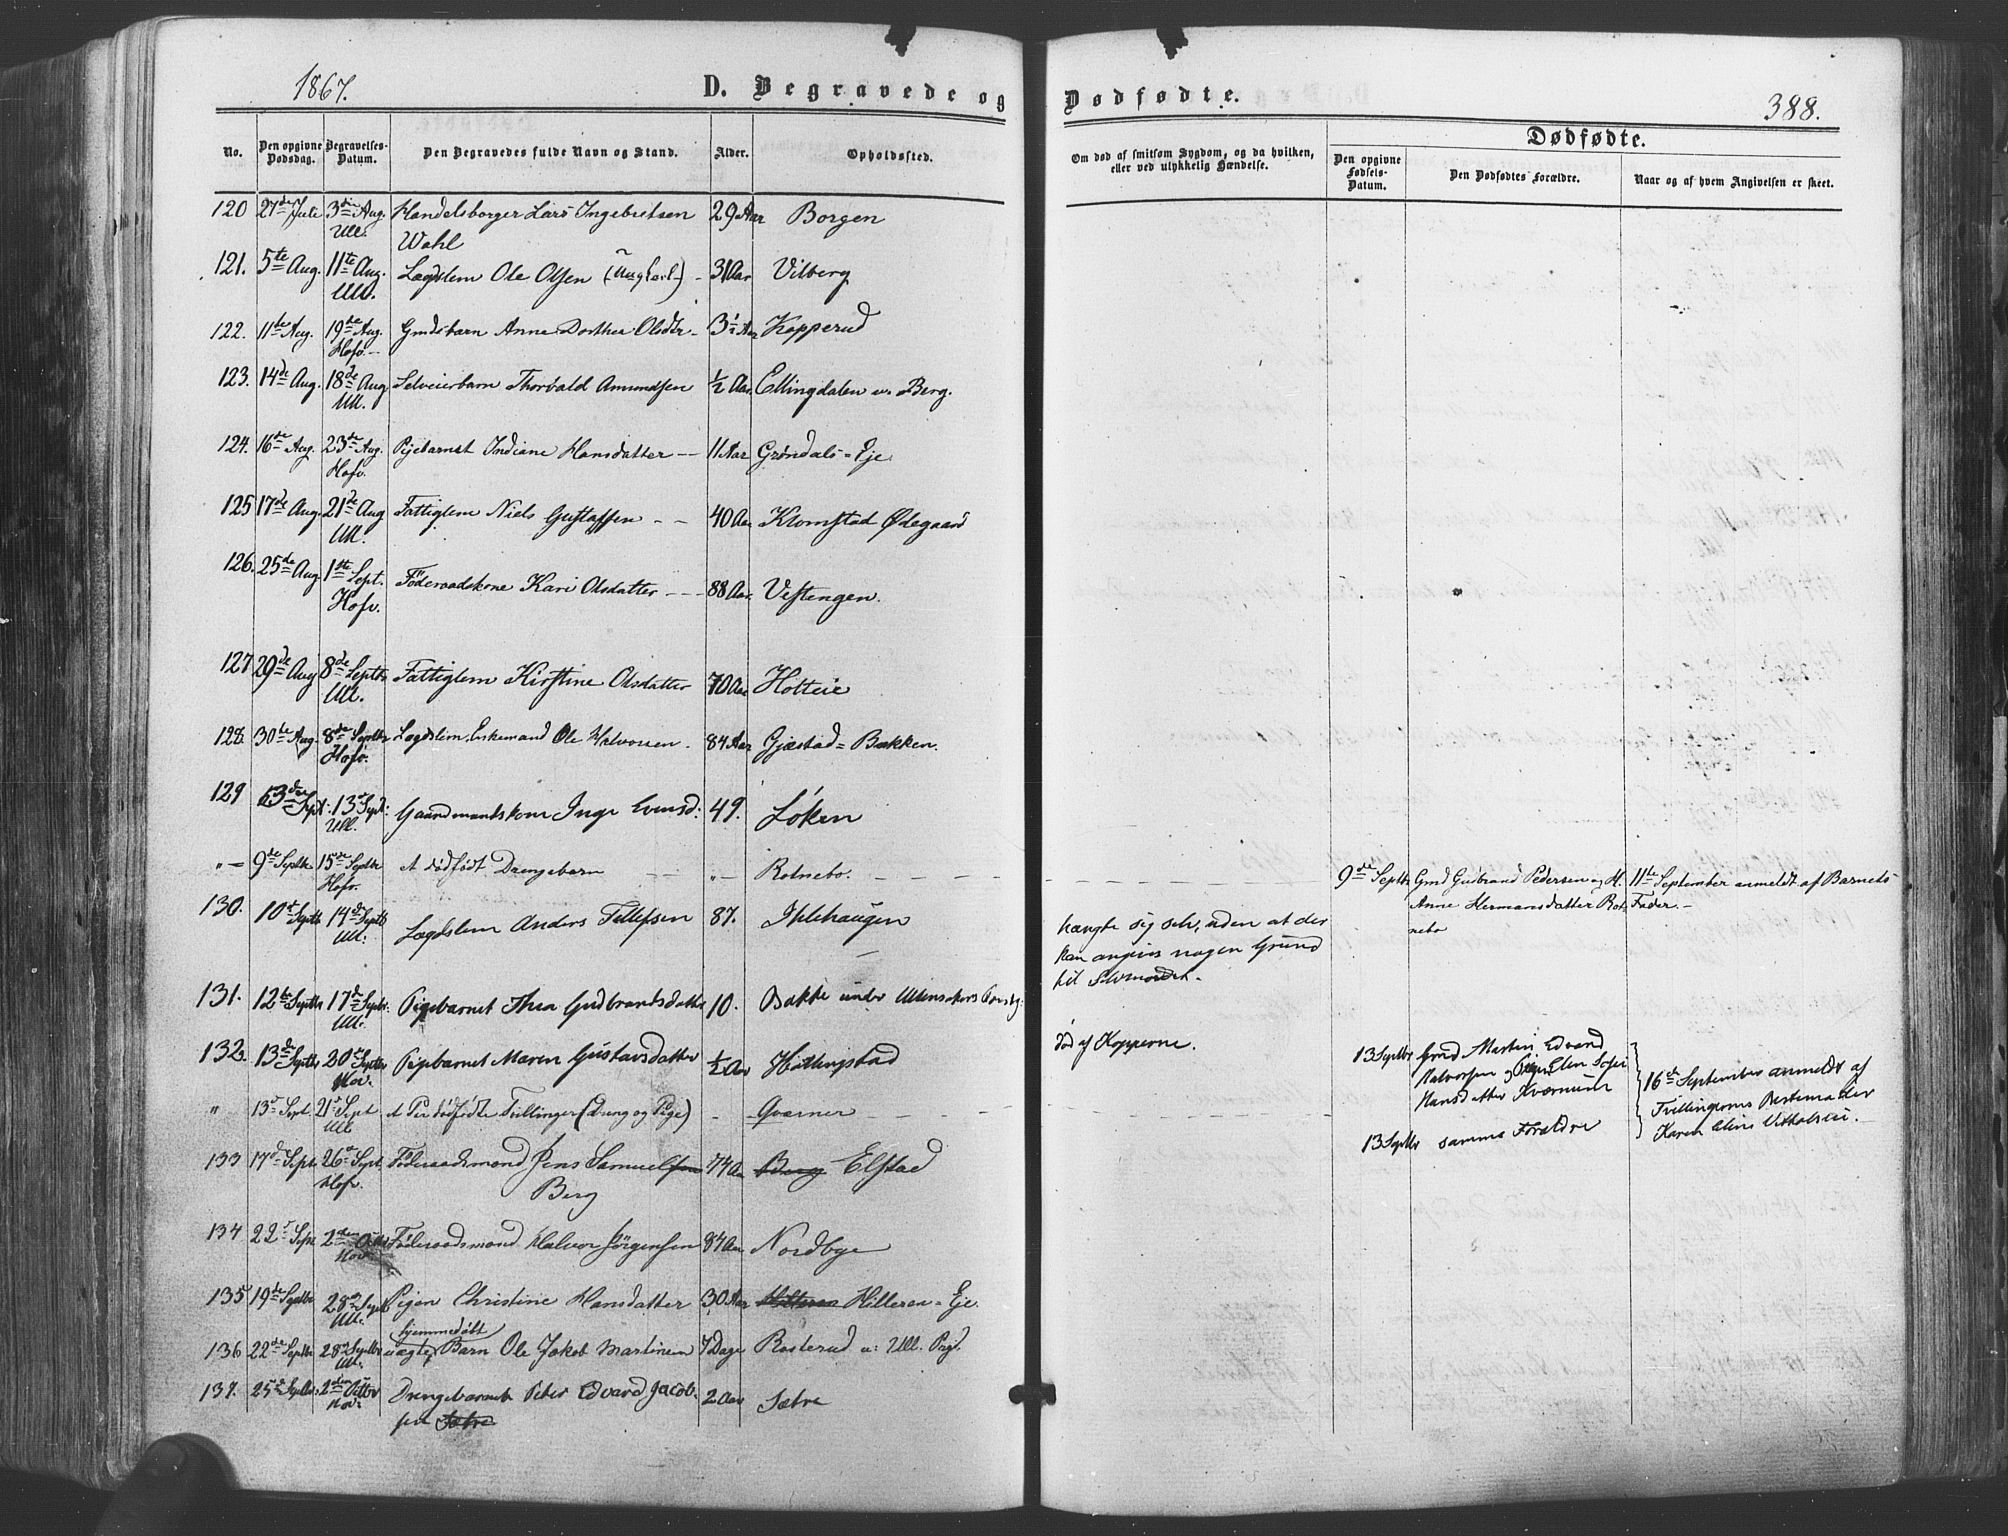 1867.
D. Begravede og
Dødfødte.
388.
No.
Den opgivne Dødsdag.
Begravelses-Datum.
Den Begravedes fulde Navn og Stand.
Alder.
Opholdssted.
Om død af smitsom Sygdom, og da hvilken,
eller ved ulykkelig Hændelse.
Dødfødte.
Den opgivne Fødsels-Datum.
Den Dødfødtes Forældre.
Naar og af hvem Angivelsen er skeet.
120 27de Juli 3die Aug. Handelsborger Lars Ingebretsen 29 Aar Borgen
Ull. Wahl
121. 5te Aug. 11te Aug. Lægdslem Ole Olsen (Ungkarl) - 31 Aar Vilberg
Ull.
122. 11te Aug. 19de Aug. Gmdsbarn Anne Dorthea Olsdtr - 3½ Aar Kopperud
Hofv.
123. 14de Aug. 18de Aug Selveierbarn Thorvald Amundsen ½ Aar. Ellingdalen u. Berg.
Ull.
124. 16de Aug. 23de Aug. Pigebarnet Indiane Hansdatter - - 11 Aar Grøndals-Eje
Hofv.
125 17de Aug. 21de Aug Fattiglem Niels Gustafsen - - 40 Aar Klomstad Ødegaard
Ull.
126. 25de Aug 1ste Sept. Föderaadskone Kari Olsdatter - - - 88 Aar. Vestengen.
Hofv.
127 29de Aug 8de Septbr Fattiglem Kirstine Olsdatter 70 Aar Holteie
Ull.
128. 30te Aug. 8de Septbr Lægdslem, Enkemand Ole Halvorsen. 84 Aar Gjæstad-Bakken.
Hofv.
129 3die Sept. 13de Sept: Gaardmandskone Inge Evensd: 49. Løken
Ull.
"- 9de Septbr 15de Septbr Et dödfödt Drengebarn - - "- Rotnebo. - - - -
Hofv.
9de Septbr Gmd Gudbrand Pedersen og H. 11te September anmeldt af Barnets
Anne Hermansdatter Rot- Fader. -
nebo
130. 10de Septbr 14de Septbr Lægdslem Anders Tellefsen 87. Ihlehaugen
Ull.
hængte sig selv, uden at der
kan angives nogen Grund
til Selvmordet.
131. 12te Septbr 17de Septbr. Pigebarnet Thea Gudbrandsdatter 10. Bakke under Ullensakers Præstg:
Ull.
132. 13de Septbr 20de Septbr Pigebarnet Maren Gustavsdatter ½ Aar Hättingstad
Hov.
død af Kopperne.
" 13de Sept 21de Sept et Par dödfödte Tvillinger (Dreng og Pige) - - Qværner - - - -
Ull
13 Septbr Gmd Martin Edvard
Halvorsen og Pigen Elen Sofie
Hansdatter Kværnum
13 Septbr samme Forældre
16de September anmeldt af
Tvillingernes Bestemoder
Karen
133 17de Sept. 26de Sept. Föderaadsmand Jens Samuelsen 74 Aar Berg Elstad
Hofv. Berg
134 22de Sept 2den Octbr Föderaadsmand Halvor Jörgensen 84 Aar Nordbye
Hov.
135 19de Septbr 28de Septbr Pigen Christine Hansdatter 30 Aar Hilleren-Eje.
Ull.
hjemmedöbt
136 22de Septbr 28de Septbr uægte Barn Ole Jakob Martinsen 7 Dage Rosterud u: Ull. Pgd.
Ull.
137. 25de Septbr. 2den Octbr Drengebarnet Peter Edvard Jacob- 2 Aar Sætre
Hov. sen Sætre